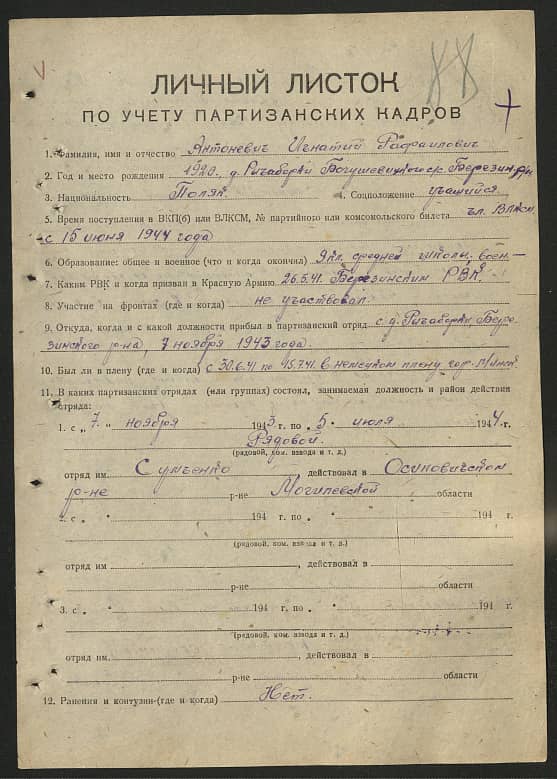 ЛИЧНЫЙ ЛИСТОК
ПО УЧЕТУ ПАРТИЗАНСКИХ КАДРОВ
1. Фамилия, имя и отчество Антоневич Игнатий Рафаилович
2. Год и место рождения 1920. д. Ричаборки Богушевицкого с/с. Березин. р-н
3. Национальность Поляк. 4. Соцположение учащийся.
5. Время поступления в ВКП(б) или ВЛКСМ, № партийного или комсомольского билета чл. ВЛКСМ
с 15 июня 1944 года
6. Образование: общее и военное (что и когда окончил) 9 кл. средней школы. воен. —
7. Каким РВК и когда призван в Красную Армию 26.5.41. Березинским РВК.
8. Участие на фронтах (где и когда) не участвовал.
9. Откуда, когда и с какой должности прибыл в партизанский отряд с д. Ричаборки, Бере-
зинского р-на, 7 ноября 1943 года.
10. Был ли в плену (где и когда) с 30.6.41 по 15.7.41. в немецком плену гор. Минск.
11. В каких партизанских отрядах (или группах) состоял, занимаемая должность и район действия
отряда:
1. с „ 7. „ ноября 1943 г. по „ 5 „ июля 1944 г.
Рядовой.
(рядовой, ком. взвода и т. д.)
отряд им. Сумченко действовал в Осиповичском
р-не р-не Могилевской области
2. с „ „ 194 г. по „ „ 194 г.
(рядовой, ком. взвода и т. д.)
отряд им , действовал в
р-не области
3. с „ „ 194 г. по „ „ 194 г.
(рядовой, ком. взвода и т. д.)
отряд им. , действовал в
р-не области
12. Ранения и контузии (где и когда) Нет.